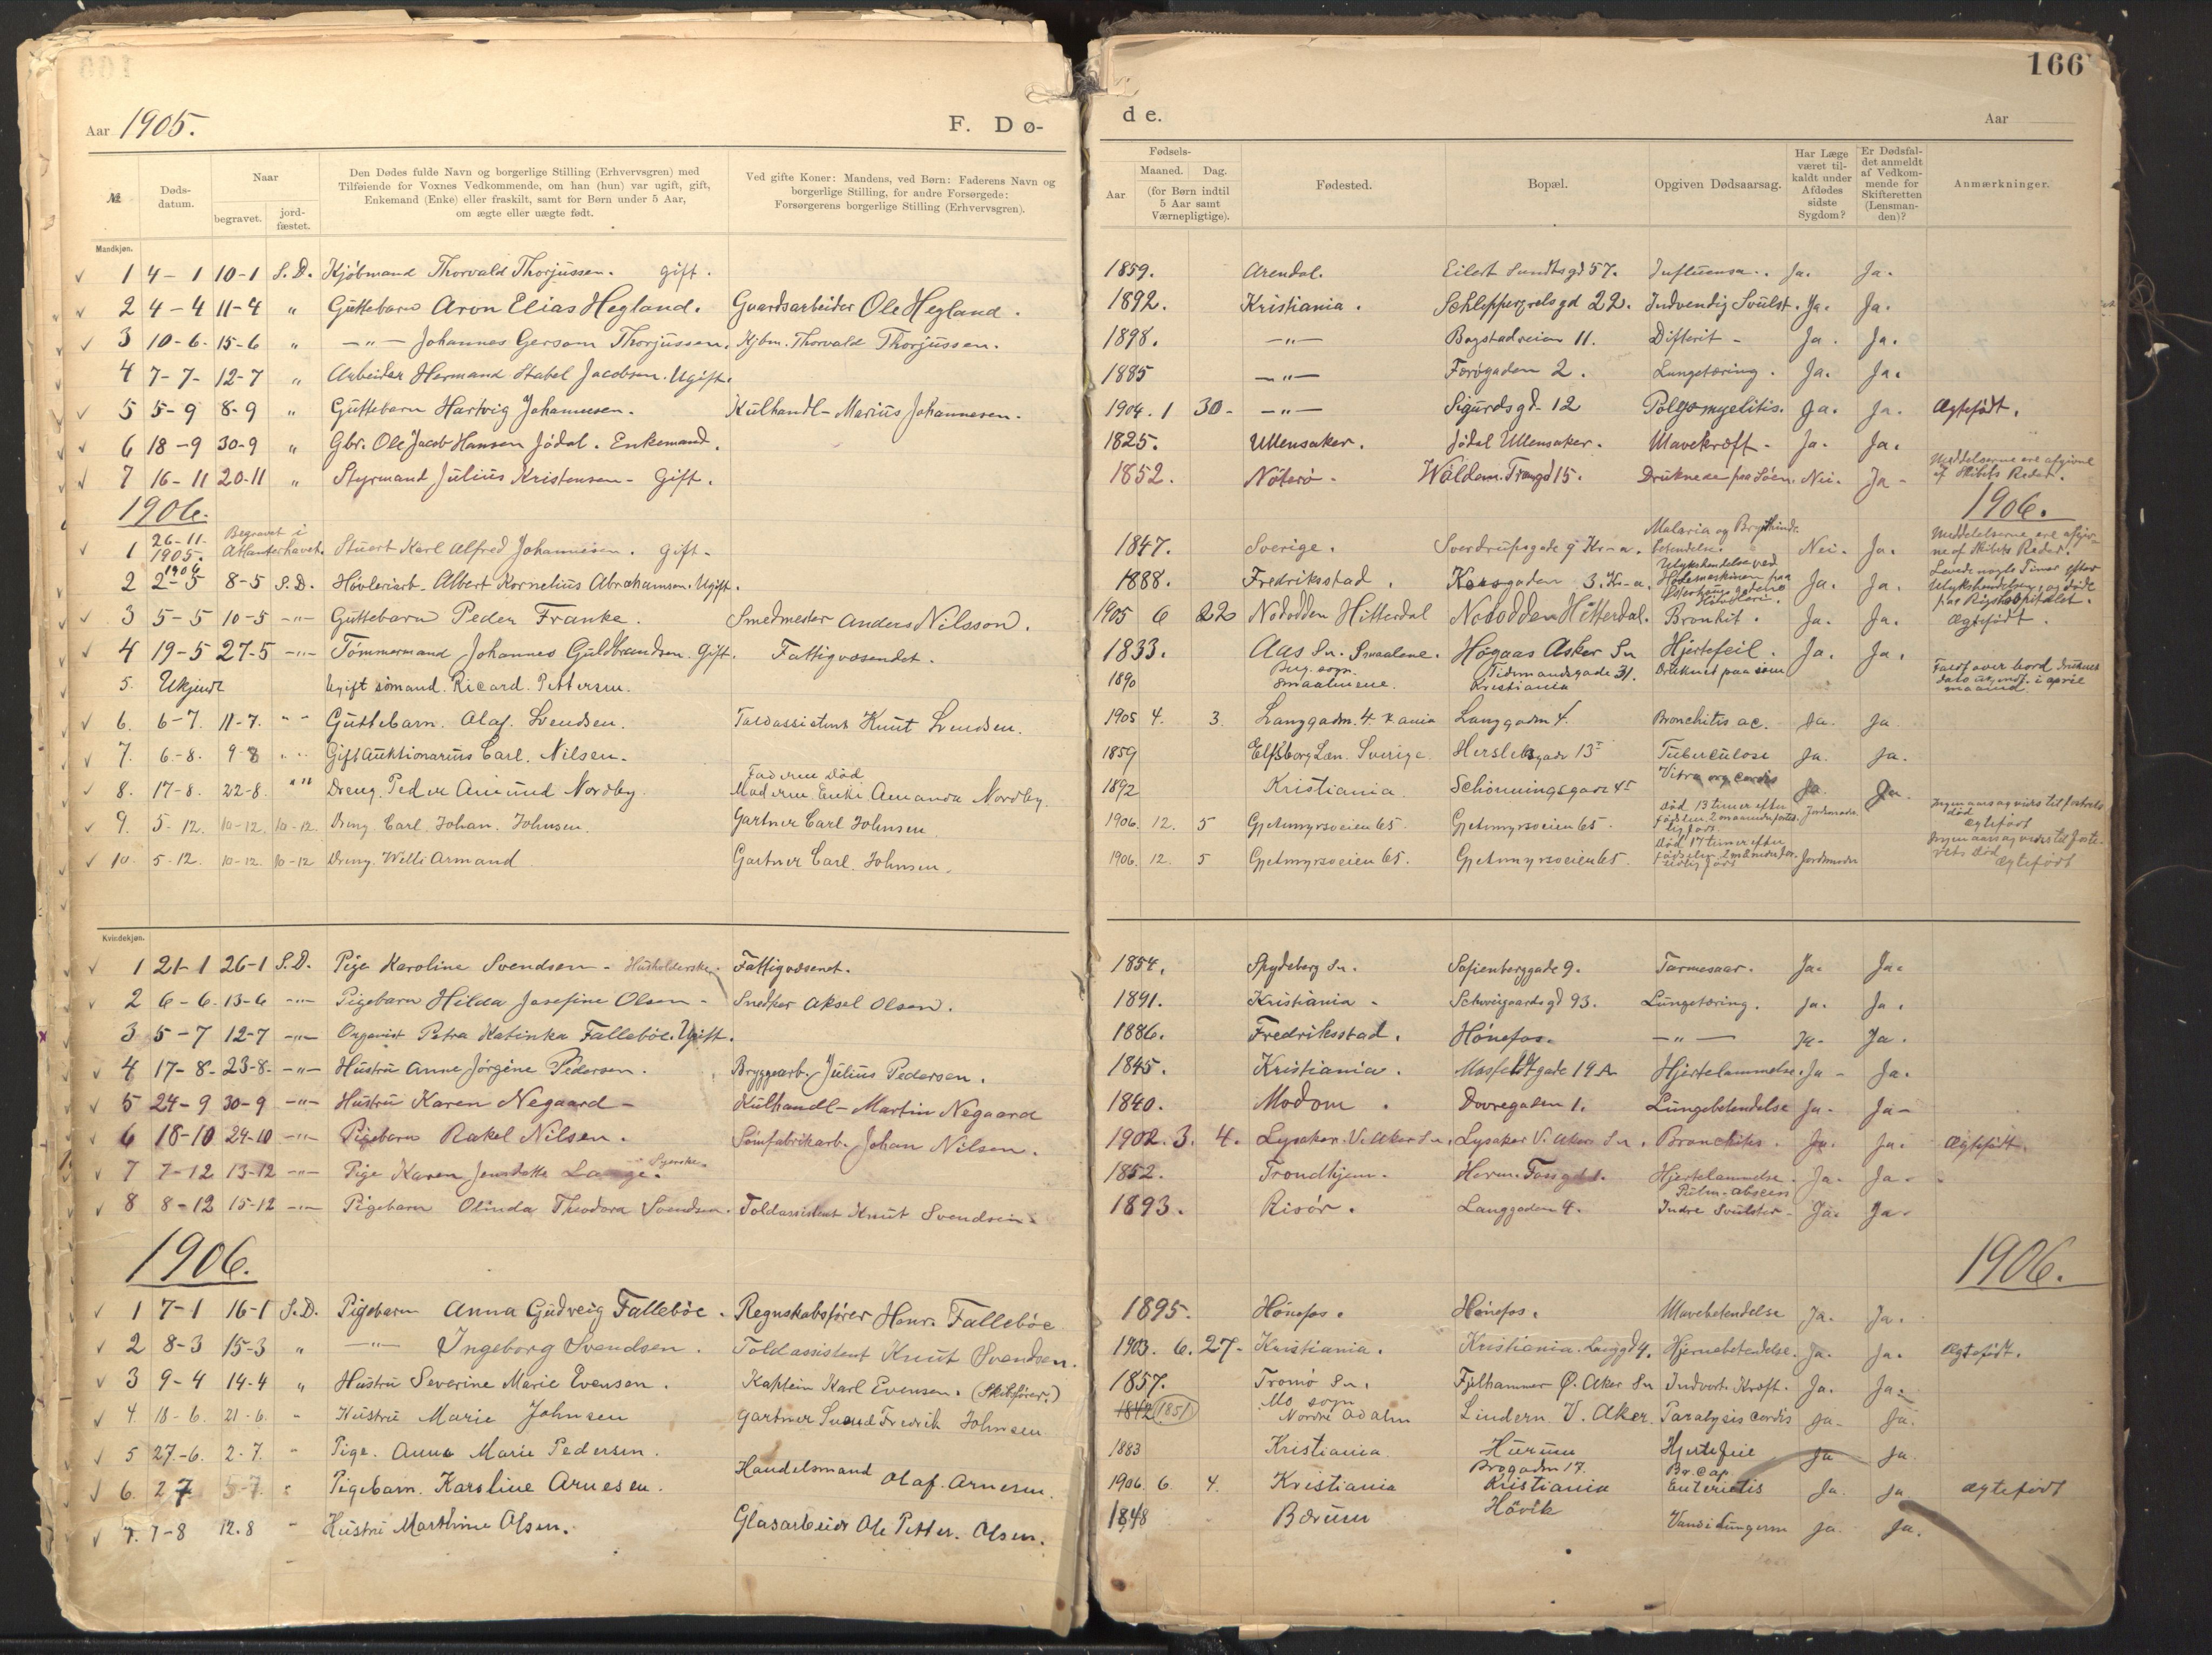 166
Aar 1905.
F. Dø-
de.
Aar
№
Døds-
datum.
Naar
begravet.
jord-
fæstet.
Den Dødes fulde Navn og borgerlige Stilling (Erhvervsgren) med
Tilføiende for Voxnes Vedkommende, om han (hun) var ugift, gift,
Enkemand (Enke) eller fraskilt, samt for Børn under 5 Aar,
om ægte eller uægte født.
Ved gifte Koner: Mandens, ved Børn: Faderens Navn og
borgerlige Stilling, for andre Forsørgede:
Forsørgerens borgerlige Stilling (Erhvervsgren).
Fødsels-
Aar
Maaned.
Dag.
(for Børn indtil
5 Aar samt
Værnepligtige).
Fødested.
Bopæl.
Opgiven Dødsaarsag.
Har Læge
været til-
kaldt under
Afdødes
sidste
Sygdom?
Er Dødsfal-
det anmeldt
af Vedkom-
mende for
Skifteretten
(Lensman-
den)?
Anmærkninger.
Mandkjøn.
1 4-1 10-1 S.D. Kjöbmand Thorvald Thorjussen. gift. 1859. Arendal. Eilert Sundtsgd 57. Influensa. Ja. Ja.
2 4-4 11-4 " Guttebarn Aron Elias Hegland. Gaardsarbeider Ole Hegland. 1892. Kristiania. Schleppegrelsgd 22. Indvendig Svulst. Ja. Ja.
3 10-6. 15-6 " -"- Johannes Gersom Thorjussen. Kjbm. Thorvald Thorjussen. 1898. -"- Bogstadveien 11. Difterit - Ja. Ja.
4 7-7- 12-7 " Arbeider Hermand Stabel Jacobsen. Ugift. 1885 -"- Færøgaden 2. Lungetæring. Ja. Ja.
5 5-9 8-9 " Guttebarn Hartvig Johannesen. Kulhandl- Marius Johannesen. 1904. 1 30- -"- Sigurdsgd- 12 Polyomyelitis. Ja. Ja. Ægtefödt.
6 18-9 30-9 " Gbr. Ole Jacob Hansen Jödal. Enkemand. 1825. Ullensaker. Jödal Ullensaker. Mavekræft- Ja. Ja.
7 16-11 20-11 " Styrmand Julius Kristensen- Gift. 1852. Nöterö- Waldem. Trangd 15. Druknede paa Söen. Nei. Ja- Meddelserne ere afgivne
af Skibets Reder.
1906. 1906.
1 26-11-
1905. Begravet i
Atlanterhavet. Stuert Karl Alfred Johannesen. gift- 1847. Sverige. Sverdrupsgade 9 Kr-a. Malaria og Brysthinde-
betendelse. Nei. Ja. Meddelelserne ere afgiv-
ne af Skibets Reder.
2 1906
2-5 8-5 S.D. Hövleriarb- Albert Kornelius Abrahamsen. Ugift. 1888. Fredriksstad. Korsgaden 3. Kr-a. Ulykshendelse ved
Hövlemaskinen paa Ja. Ja. Levede nogle Timer efter
Ulykshendelsen, og döde
paa Rigshospitalet.
3 5-5 10-5 -"- Guttebarn Peder Franke. Smedmester Anders Nilsson. 1905 6 22 Notodden Hitterdal Notodden Hitterdal. Bronkit. Ja. Ja. Ægtefödt.
4 19-5 27-5 -"- Tömmermand Johannes Guldbrandsen. Gift. Fattigvæsendet. 1833. Aas Sn. Smaalene. Högaas Asker Sn Hjertefeil. Ja. Ja.
5. Ukjendt Ugift sömand. Ricard. Pettersen. 1890 Smaalenene. Tidemandsgade 31.
Kristiania Druknet paa söen Faldt over bord druknet
i april
maaned.
6. 6-7. 11-7. " Guttebarn. Olaf. Svendsen. Toldassistent Knut Svendsen. 1905 4. 3. Langgadn. 4. K ania Langgadn 4. Bronchitis ac. Ja. Ja
7. 6-8. 9-8 " Gift Auktionarius Carl. Nilsen. 1859 Elfsborg Len. Sverige. Herslebsgade 13 Tuberculose Ja. Ja.
8. 17-8. 22-8. " Dreng. Peder Amund Nordby. Faderen död
Moderen Enke Amanda Nordby. 1892 Kristiania. Schönningsgade 45 Vitra org cordis Ja. Ja.
9. 5-12. 10-12. 10-12. Dreng Carl. Johan. Johnsen. Gartner Carl Johnsen. 1906. 12. 5 Gjetemyrsveien 65. Gjetemyrsveien 65. Död 13 timer efter
födselen. 2 maaneder fortid-
lig födt. Jordmoder Ingen aarsag vides til fosterets
död
Ægtefödt
10. 5-12. 10-12. 10-12 Dreng. Willi Armand Gartner Carl. Johnsen. 1906. 12. 5 Gjetemyrsveien 65. Gjetemyrsveien 65. Död 17 timer efter
födselen. 2 maaneder for-
tidlig födt Jordmoder Ingen aarsag vides til foste-
rets död
Ægtefödt
Kvindekjøn.
1 21-1 26-1 S.D. Pige Karoline Svendsen- Husholderske. Fattigvæsenet. 1854. Spydeberg Sn. Sofienberggade 9. Tarmesaar. Ja. Ja.
2 6-6. 13-6 -"- Pigebarn Hilda Josefine Olsen- Snedker Aksel Olsen. 1891. Kristiania- Schweigaardsgd 93. Lungetæring. Ja. Ja.
3 5-7 12-7 -"- Organist Petra Katinka Falleböe. Ugift. 1886. Fredriksstad. Hönefos. -"- Ja- Ja.
4 17-8- 23-8- -"- Hustru Anne Jörgine Pedersen. Bryggearb. Julius Pedersen. 1845. Kristiania. gade 19 A Hjertelammelse. Ja- Ja.
5 24-9 30-9 -"- Hustru Karen Negaard- Kulhandl- Martin Negaard 1840. Modom. Dovregaden 1. Lungebetendelse Ja- Ja-
6 18-10 24-10 -"- Pigebarn Rakel Nilsen. Sömfabrikarb. Johan Nilsen. 1902. 3. 4. Lysaker. V. Aker Sn. Lysaker V. Aker Sn. Bronchites. Ja. Ja. Ægtefödt.
7 7-12 13-12 -"- Pige Karen Lange. Syerske. 1852. Trondhjem. Herm. Fossgd 1. Hjertelammelse. Ja. Ja.
8 8-12 15-12 -"- Pigebarn Olinda Theodora Svendsen. Toldassistent Knut Svendsen. 1893. Risör. Langgaden 4. Pulm-abscess
Indre Svulster- Ja. Ja.
1906. 1906.
1 7-1 16-1 S.D. Pigebarn Anna Gudveig Falleböe. Regnskabsförer Henr. Falleböe 1895. Hönefos. Hönefos. Mavebetendelse Ja. Ja.
2 8-3 15-3 " -"- Ingeborg Svendsen. Toldassistent Knut Svendsen. 1903. 6. 27- Kristiania. Kristiania. Langgd 4. Hjernebetendelse. Ja. Ja. Ægtefödt.
3 9-4 14-4 " Hustru Severine Marie Evensen. Kaptein Karl Evensen. (Skibsförer.) 1857. Tromö Sn. Fjelhammer Ö. Aker Sn Indvort. Kræft. Ja. Ja.
4. 18-6. 21-6. " Hustru Marie Johnsen Gartner Svend Fredrik Johnsen 1842 (1851) Mo sogn
Nordre Aadalen Lindern V. Aker. Paralysis cordis Ja. Ja.
5 27-6. 2-7. " Pige. Anna Marie Pedersen. 1883 Kristiania. Hurum Hjertefeil Ja Ja.
6. 2 7 5-7. " Pigebarn. Karoline Arnesen. Handelsmand Olaf. Arnesen. 1906. 6. 4. Kristiania Brogaden 17.
Kristiania Br. cap.
Enterietis Ja. Ja ægtefödt
7. 7-8 12.8 " Hustru Marthine Olsen. Glasarbeider Ole Petter. Olsen. 1848 Bærum Hövik Vand i Lungerne Ja. Ja.